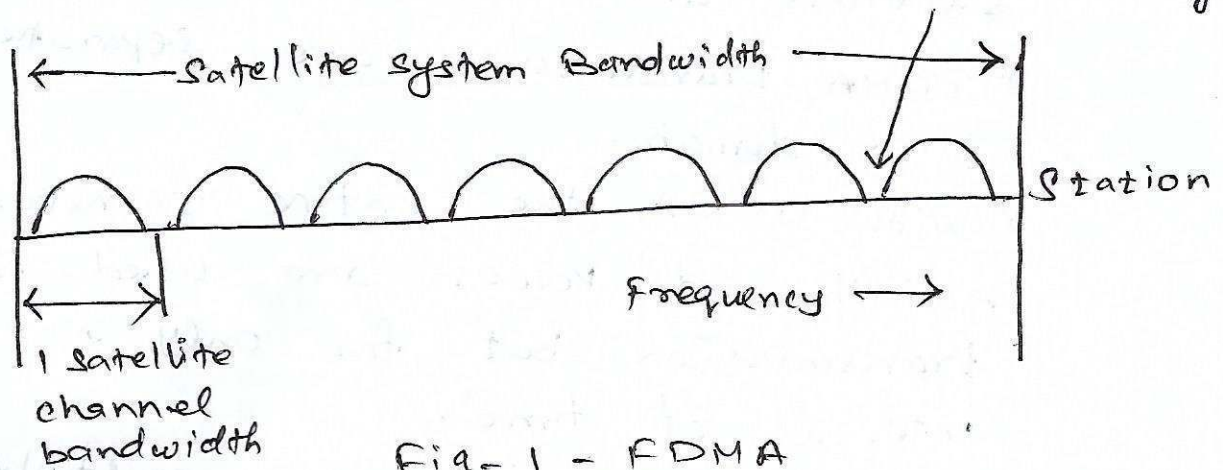 Satellite system Bandwidth
Station
Frequency
1 satellite
channel
bandwidth
Fig-1 - FDMA